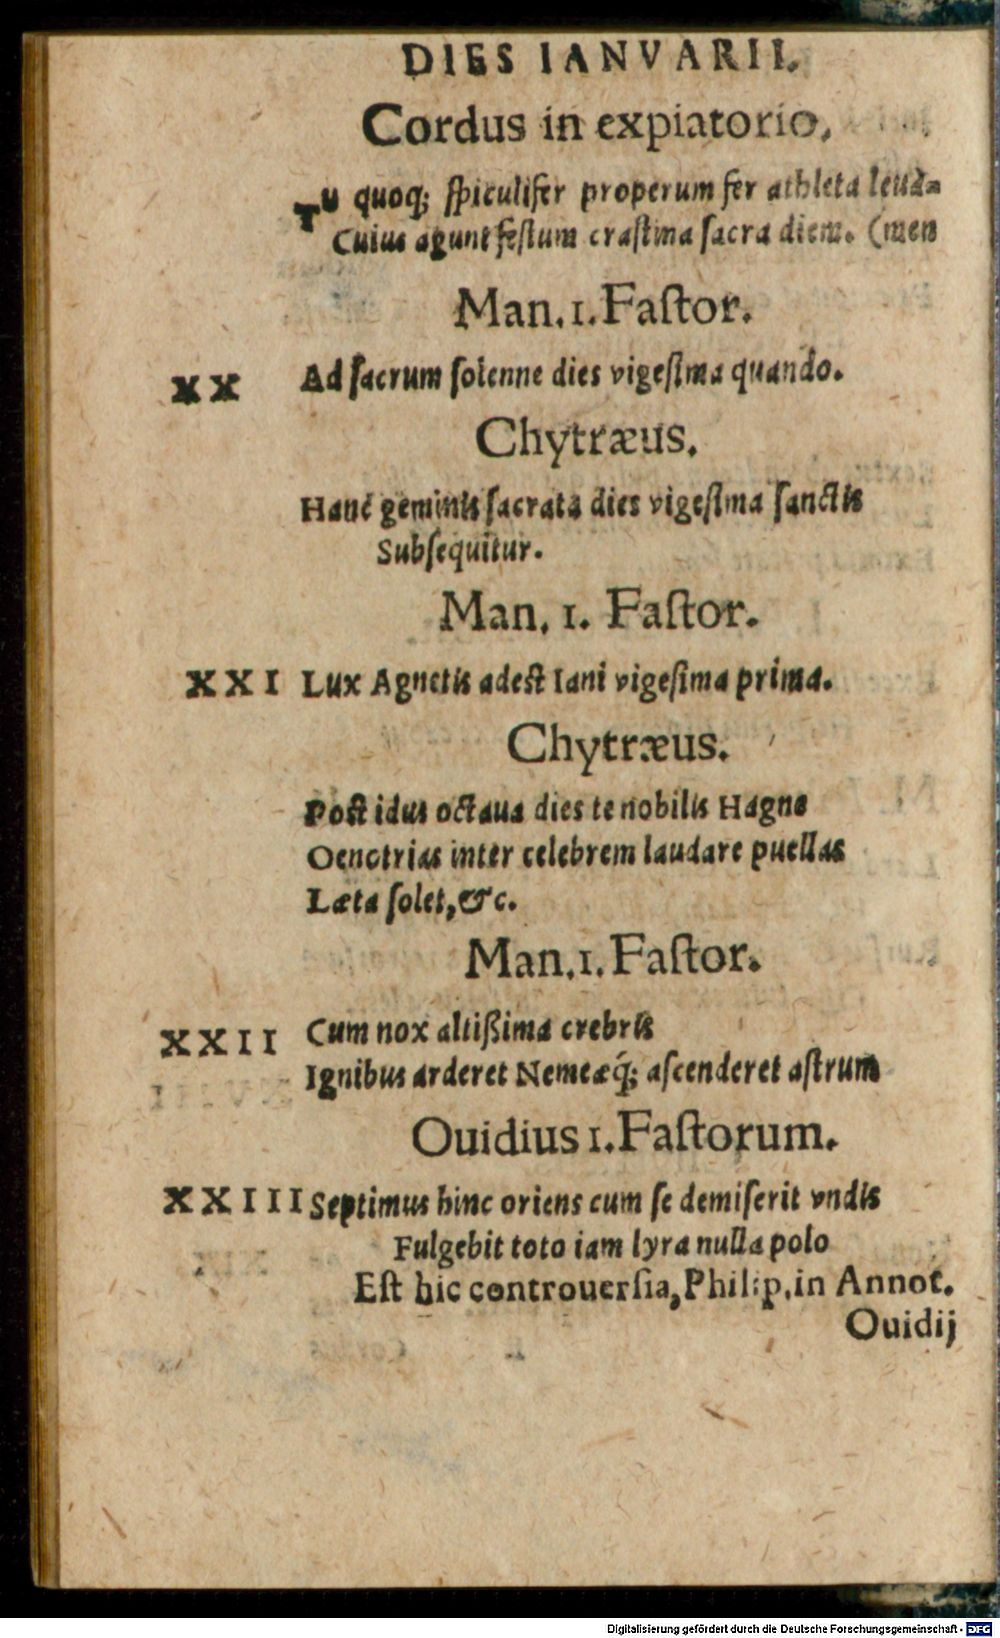 DIES IANVARII.
Cordus in expiatorio.
Tu quoq; ſpiculifer properum fer athleta leua-
Cuius agunt feſtum craſtina ſacra diem. (men
Man. 1. Faſtor.
XX Ad ſacrum ſolenne dies vigeſima quando.
Chytræus.
Hanc geminis ſacrata dies vigeſima ſanctis
Subſequitur.
Man. 1. Faſtor.
XXI Lux Agnetis adest Iani vigeſima prima.
Chytræus.
Post idus octaua dies te nobilis Hagne
Oenotrias inter celebrem laudare puellas
Læta ſolet, &c.
Man. 1. Faſtor.
XXII Cum nox altißima crebris
Ignibus arderet Nemeæq́; aſcenderet aſtrum
Ouidius 1. Faſtorum.
XXIII Septimus hinc oriens cum ſe demiſerit vndis
Fulgebit toto iam lyra nulla polo
Eſt hic controuerſia, Philip. in Annot.
Ouidij
Digitalisierung gefördert durch die Deutsche Forschungsgemeinschaft - DFG